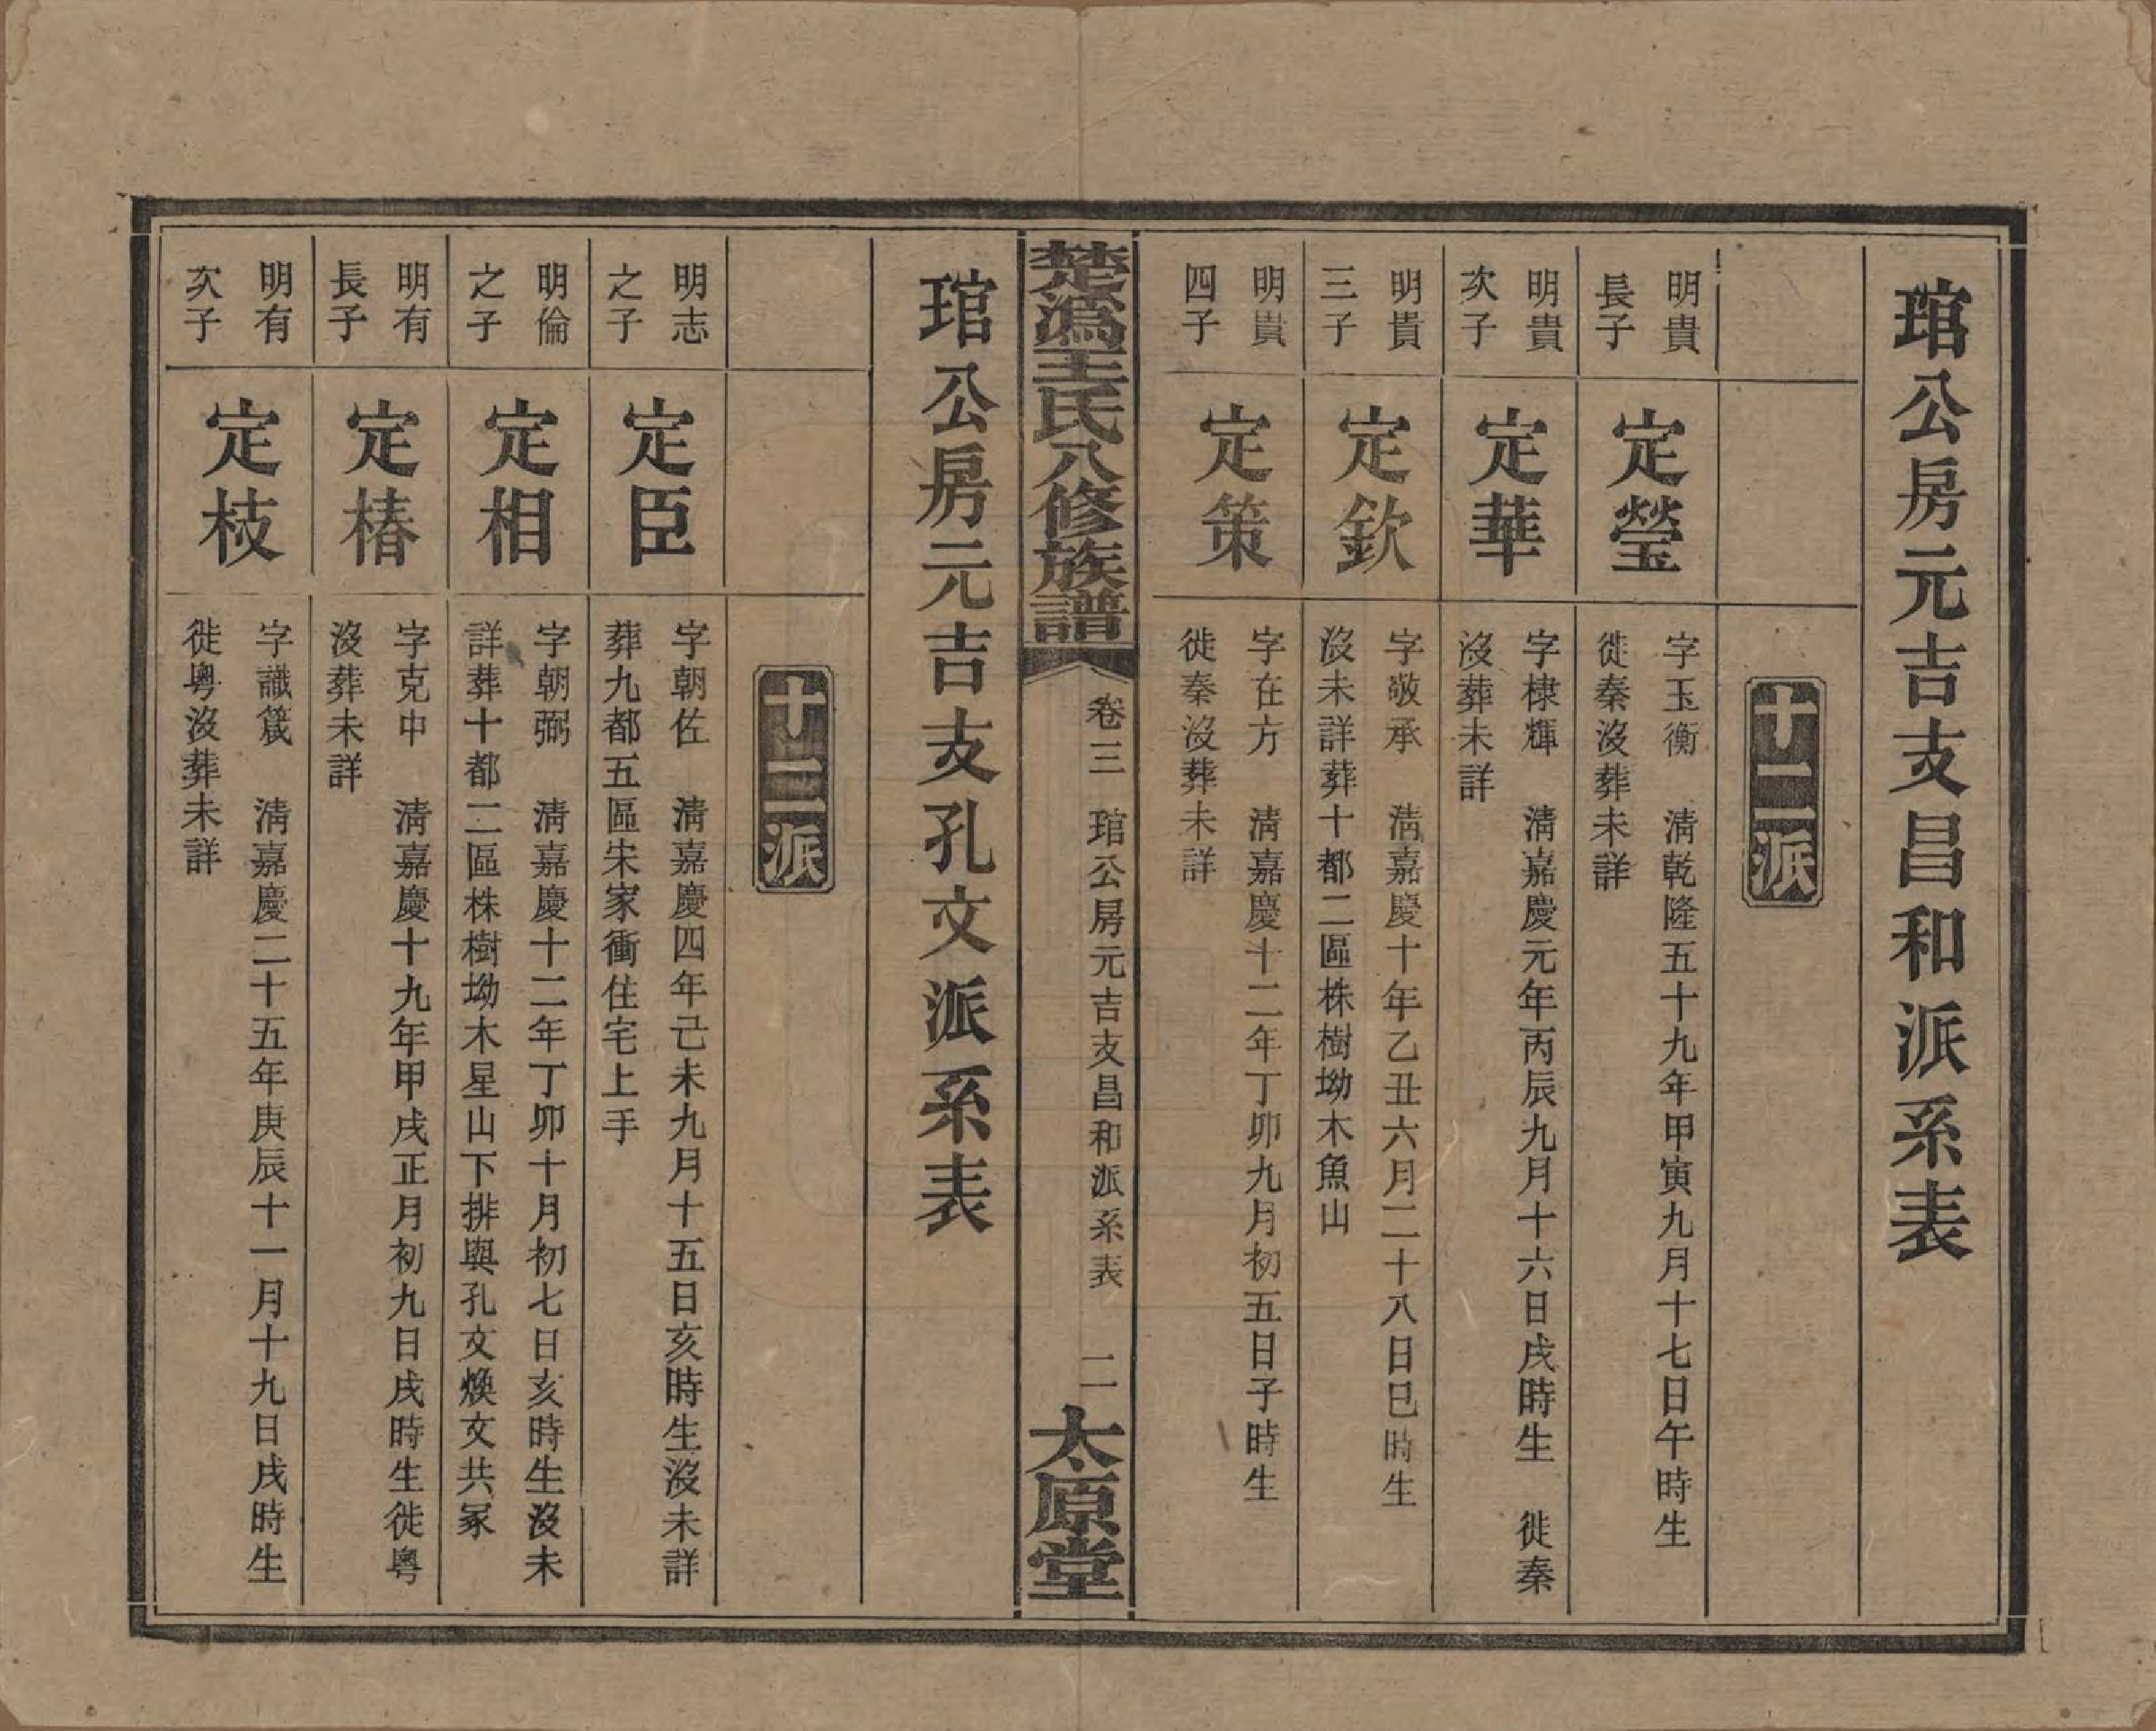 琯公房元吉支昌和派系表
十二派
明貴
長子
定瑩
字玉衡　清乾隆五十九年甲寅九月十七日午時生
徙秦沒葬未詳
明貴
次子
定華
字棣輝　清嘉慶元年丙辰九月十六日戌時生　徙秦
沒葬未詳
明貴
三子
定欽
字敬承　清嘉慶十年乙丑六月二十八日巳時生
沒未詳葬十都二區株樹坳木魚山
明貴
四子
定策
字在方　清嘉慶十二年丁卯九月初五日子時生
徙秦沒葬未詳
楚溈王氏八修族譜
卷三　琯公房元吉支昌和派系表　二
太原堂
琯公房元吉支孔文派系表
十二派
明志
之子
定臣
字朝佐　清嘉慶四年己未九月十五日亥時生沒未詳
葬九都五區朱家衝住宅上手
明倫
之子
定相
字朝弼　清嘉慶十二年丁卯十月初七日亥時生沒未
詳葬十都二區株樹坳木星山下排與孔文煥文共冢
明有
長子
定椿
字克中　清嘉慶十九年甲戌正月初九日戌時生徙粵
沒葬未詳
明有
次子
定枝
字識箴　清嘉慶二十五年庚辰十一月十九日戌時生
徙粵沒葬未詳